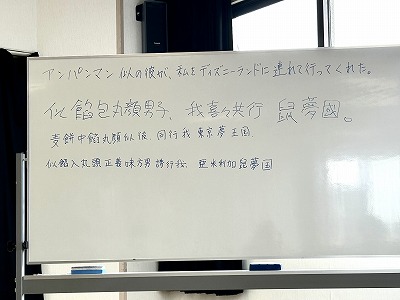 アンパンマン似の彼が、私をディズニーランドに連れて行ってくれた。
似餡包丸顔男子、我喜々共行 鼠夢國。
麦餅中餡丸顔似彼、同行我 東京夢王国.
似餡入丸頭正義味方男 誘行我、亜米利加鼠夢国